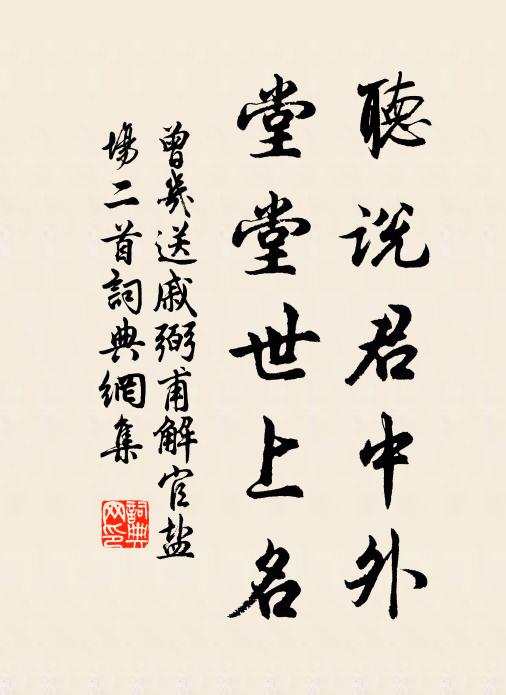 聽说君中外
堂堂世上名
曾幾送戚弼甫解官盐
場二首詞典網集
詞典网印